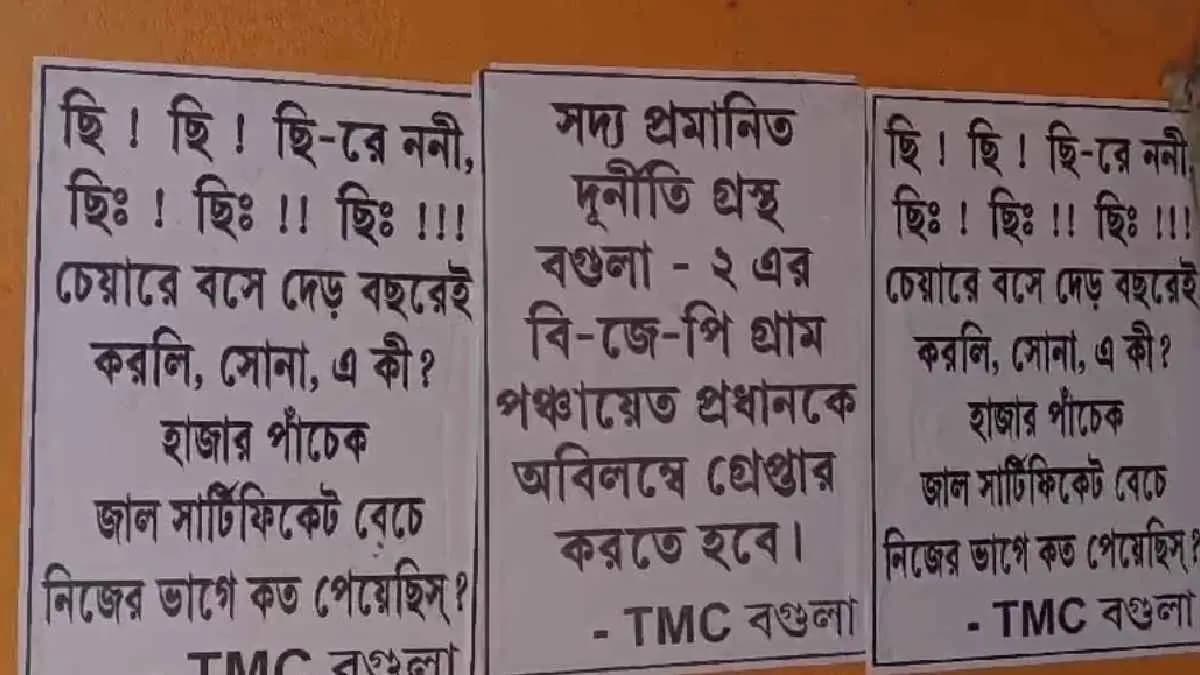 ছি ! ছি ! ছি-রে ননী,
ছিঃ ! ছিঃ !! ছিঃ !!!
চেয়ারে বসে দেড় বছরেই
করলি, সোনা, এ কী?
হাজার পাঁচেক
জাল সার্টিফিকেট বেচে
নিজের ভাগে কত পেয়েছিস্ ?
TMC বগুলা
সদ্য প্রমানিত
দূর্নীতি গ্রস্থ
বগুলা - ২ এর
বি-জে-পি গ্রাম
পঞ্চায়েত প্রধানকে
অবিলম্বে গ্রেপ্তার
করতে হবে।
- TMC বগুলা
ছি ! ছি ! ছি-রে ননী,
ছিঃ ! ছিঃ !! ছিঃ !!!
চেয়ারে বসে দেড় বছরেই
করলি, সোনা, এ কী?
হাজার পাঁচেক
জাল সার্টিফিকেট বেচে
নিজের ভাগে কত পেয়েছিস্ ?
- TMC বগুলা